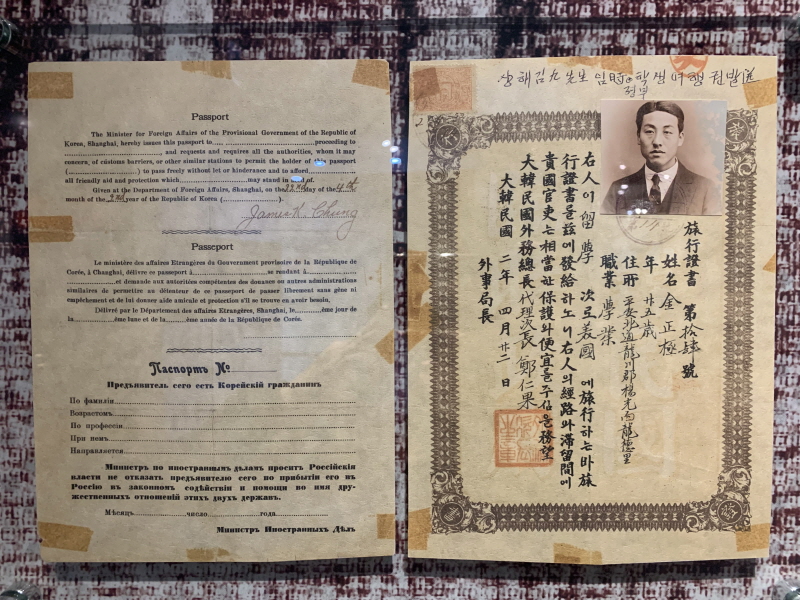 Passport
The Minister for Foreign Affairs of the Provisional Government of the Republic of
Korea, Shanghai, hereby issues this passport to.................................proceeding to
...............................and requests and requires all the authorities, whom it may
concern, of customs barriers, or other similar stations to permit the holder of this passport
(.........................) to pass freely without let or hinderance and to afford.........................
all friendly aid and protection which.....................may stand in need of.
Given at the Department of Foreign Affairs, Shanghai, on the 22nd day of the 4th
month of the 2nd year of the Republic of Korea (.....................).
James K. Chung
Passeport
Le ministère des affaires Etrangères du Gouvernement provisoire de la République de
Corée, à Changhai, délivre ce passeport à...........................se rendant à.....................
.........................et demande aux autorités compétentes des douanes ou autres administrations
similaires de permettre au détenteur de ce passeport de passer librement sans gêne ni
empêchement et de lui donner aide amicale et protection s'il se trouve en avoir besoin.
Délivré par le Département des affaires Etrangères, Shanghai, le.............ème jour de
la.....................ème lune et de la.............ème année de la République de Corés.
Паспортъ №
Предъявитель сего есть Корейскій гражданинъ
По фамиліи
Возрастомъ
По профессіи
При немъ
Направляется
Министръ по иностраннымъ дѣламъ проситъ Россійскія
власти не отказать предъявителю сего по прибытіи его въ
Россію въ законномъ содѣйствіи и помощи во имя дру-
жественныхъ отношеній этихъ двухъ державъ.
Мѣсяцъ.....................число.....................года
Министръ Иностранныхъ Дѣлъ
상해 김九 先生 임時 학생 여행권
정부
旅行證書 第拾肆號
姓名 金正極
年 廿五歲
住所 平安北道龍川郡楊光面龍德里
職業 學業
右人이 留學 次로 美國 에 旅行하는바 旅
行證書를 玆에 發給하노니 右人의 經路와 滯留間에
貴國官吏는 相當한 保護와 便宜를 주심을 務望
大韓民國外務總長代理次長 鄭仁果
大韓民國 二年 四月 廿二日
外事局長